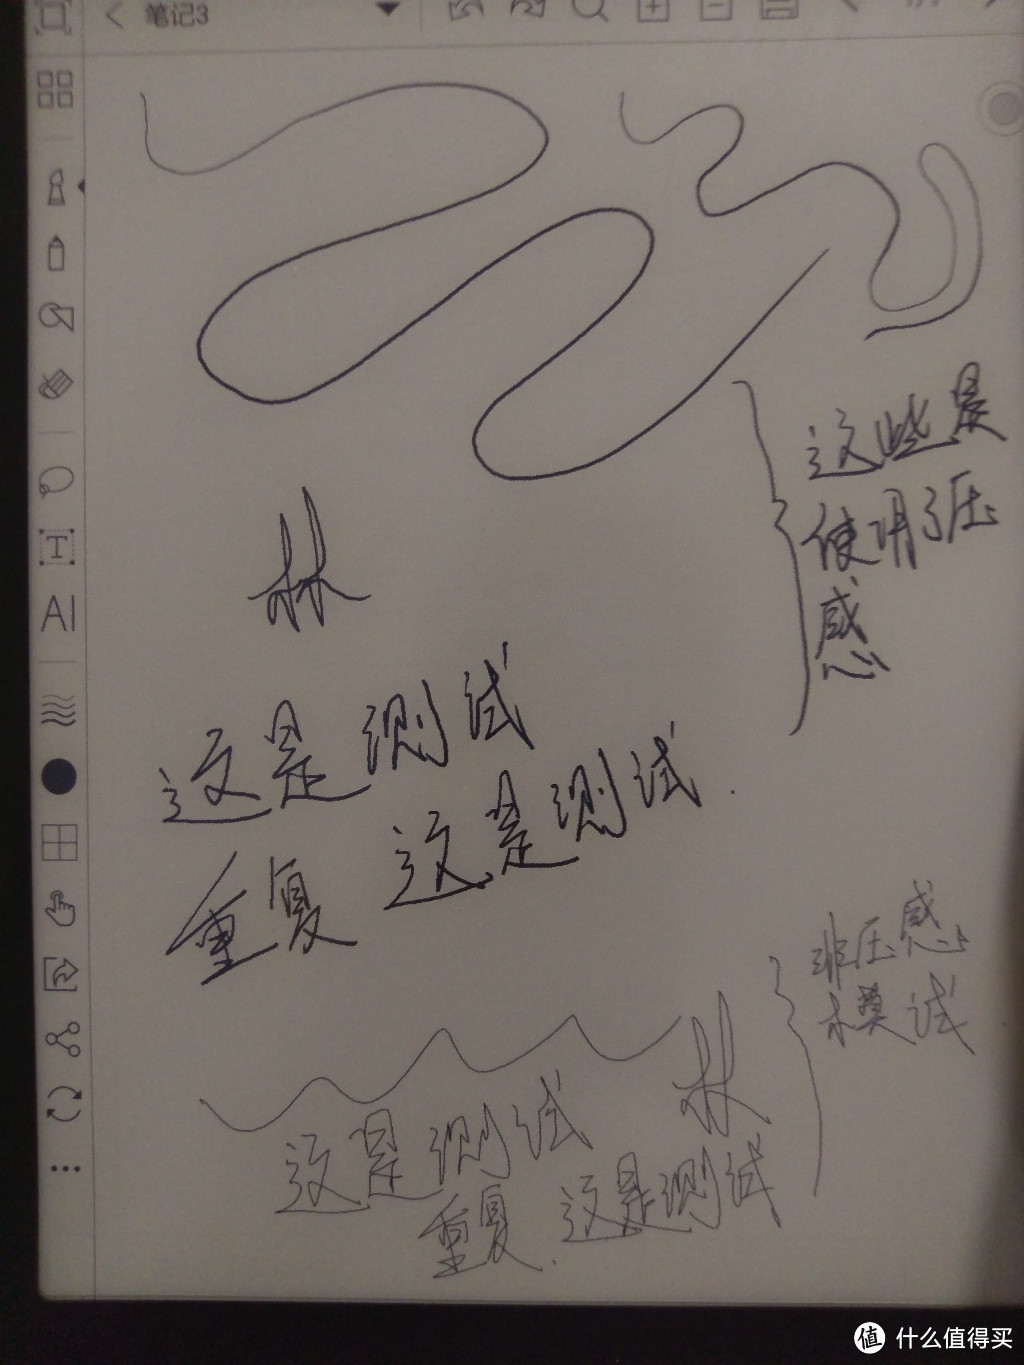 笔记3
这些是
使用了压
感
林
这是测试
重复 这是测试.
非压感
模试
林
这是测试
重复.这是测试
T
AI
值 什么值得买